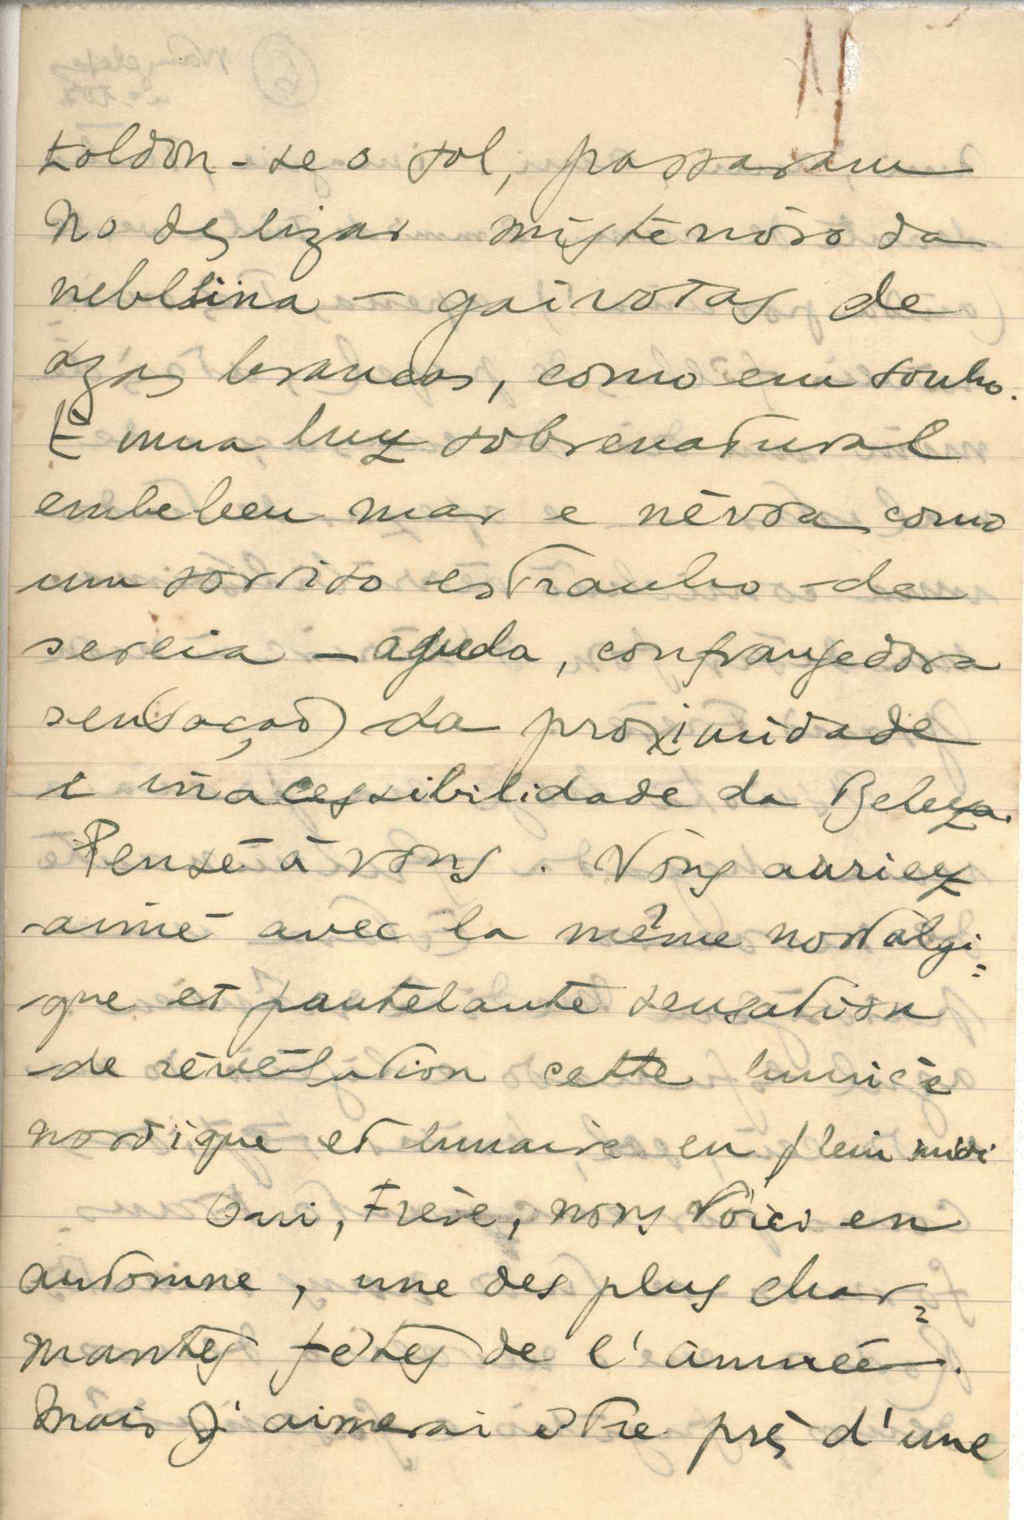 toldou-se o sol, passaram
no deslizar mistérioso da
neblina – gaivotas de
azas brancas, como em sonho.
E uma luz sobrenatural
embebeu mar e névoa como
um sorriso estranho de
sereia – aguda, confrangedora
sensação da proximidade
e inacessibilidade da Beleza.
Pensé à vous. Vous auriez
aimé avec la même nostalgi=
que et pantelante sensation
de révélation cette lumière
nordique et lunaire en plein midi
Oui, Frère, nous voici en
automne, une des plus char=
mantes fêtes de l'année.
Mais j'aimerai être près d'une